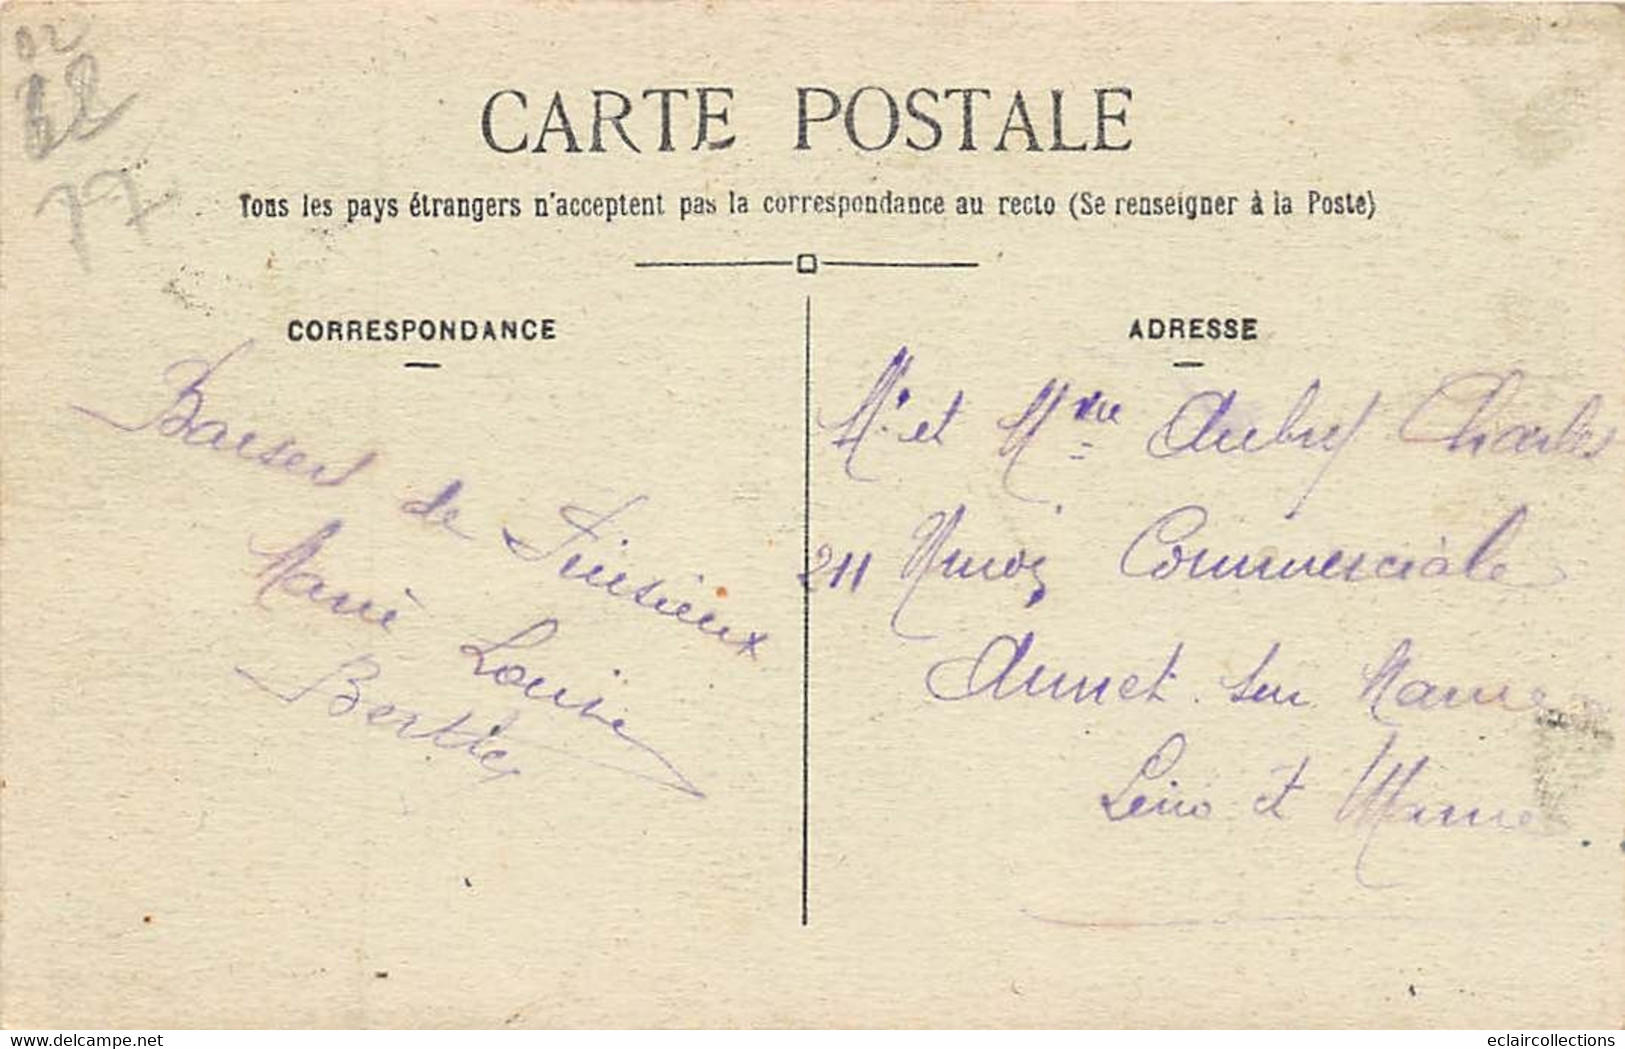 02
77
CARTE POSTALE
Tous les pays étrangers n'acceptent pas la correspondance au recto (Se renseigner à la Poste)
CORRESPONDANCE
Baisers de
Marie Louise
Berthe
ADRESSE
Mr et Mme Aubry Charles
Union Commerciale
Annet sur Marne
Seine et Marne
www.delcampe.net
eclaircollections